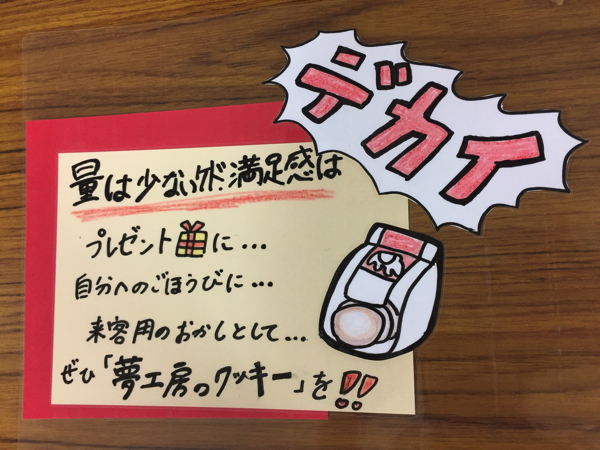 量は少ないケド、満足感は
デカイ
プレゼントに...
自分へのごほうびに...
来客用のおかしとして...
ぜひ「夢工房のクッキー」を!!